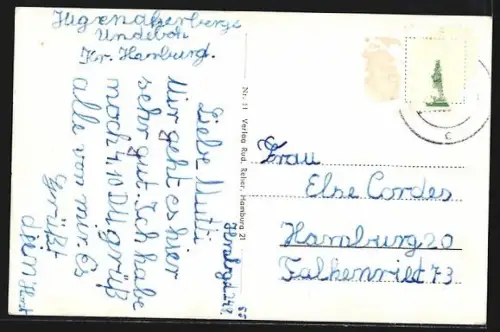 Jugendherberge
Undeloh
Kr. Harburg.
Liebe Mutti
Mir geht es hier
sehr gut. Ich habe
noch 4,10 DM, grüß
alle von mir. Es
Grüßt
dein Horst
Nr. 11 Verlag Rud. Reher, Hamburg 21
Frau
Else Cordes
Hamburg 20
Falkenried 73